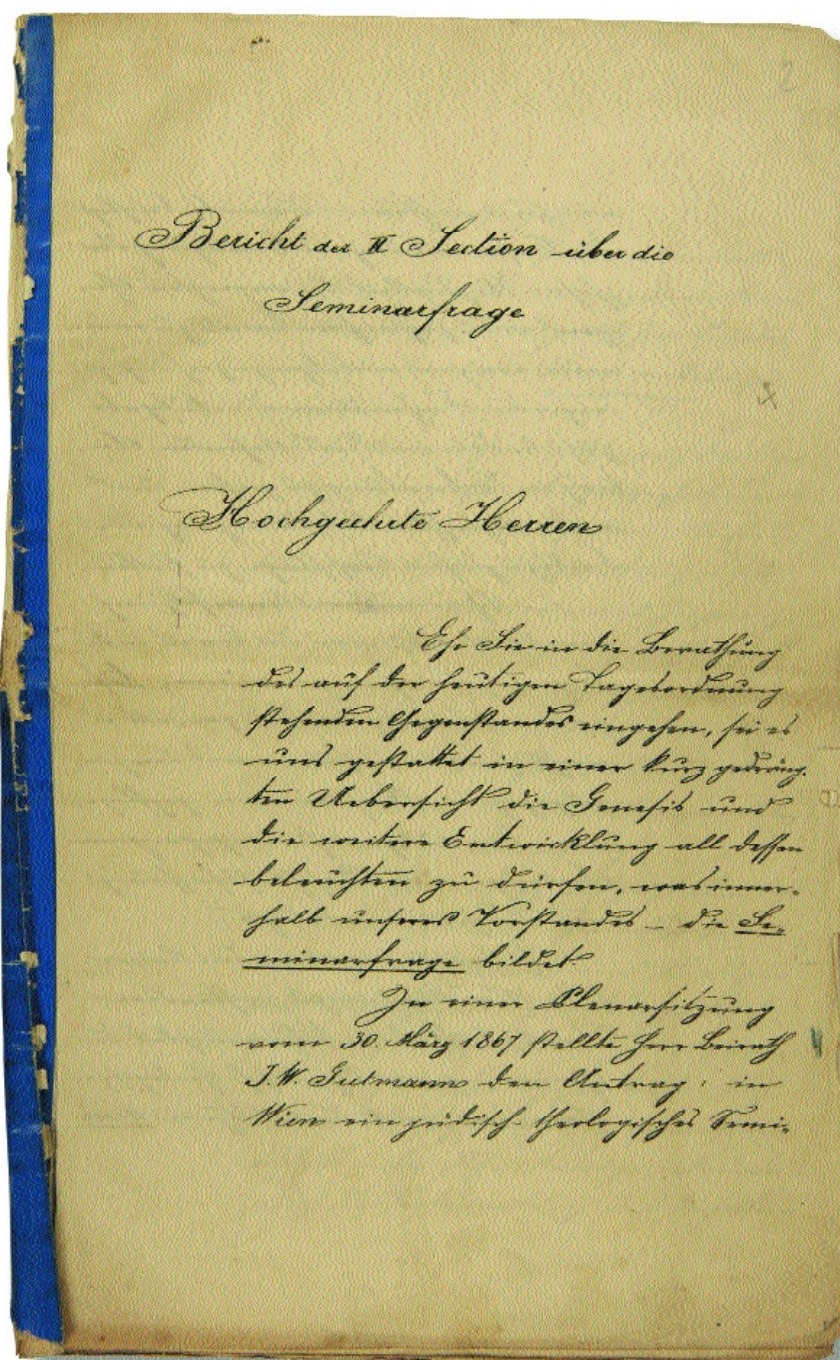 2
Bericht der II Section über die
Seminarfrage
Hochgeehrte Herren
Ehe Sie in die Berathung
des auf der heutigen Tagesordnung
stehenden Gegenstandes eingehen, sei es
uns gestattet in einer kurz gedräng-
ten Uebersicht die Genesis und
die weitere Entwicklung all dessen
beleuchten zu dürfen, was inner-
halb unseres Vorstandes – die Se-
minarfrage bildet.
In einer Plenarsitzung
vom 30. März 1867 stellte Herr Beirath
J. W. Gutmann den Antrag: in
Wien ein jüdisch-theologisches Semi-